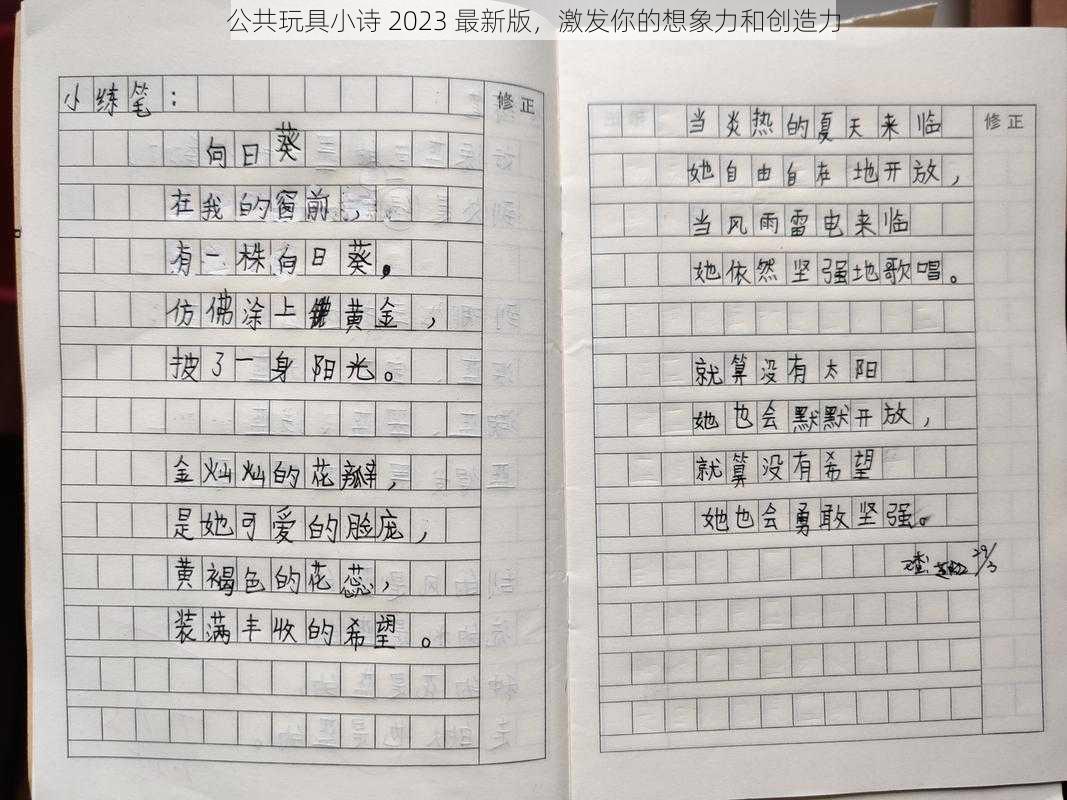 公共玩具小诗 2023 最新版，激发你的想象力和创造力
小练笔：
修正
向日葵
在我的窗前，
有一株向日葵。
仿佛涂上黄金，
披了一身阳光。
金灿灿的花瓣，
是她可爱的脸庞，
黄褐色的花蕊，
装满丰收的希望。
修正
当炎热的夏天来临
她自由自在地开放，
当风雨雷电来临
她依然坚强地歌唱。
就算没有太阳
她也会默默开放，
就算没有希望
她也会勇敢坚强。
29/3